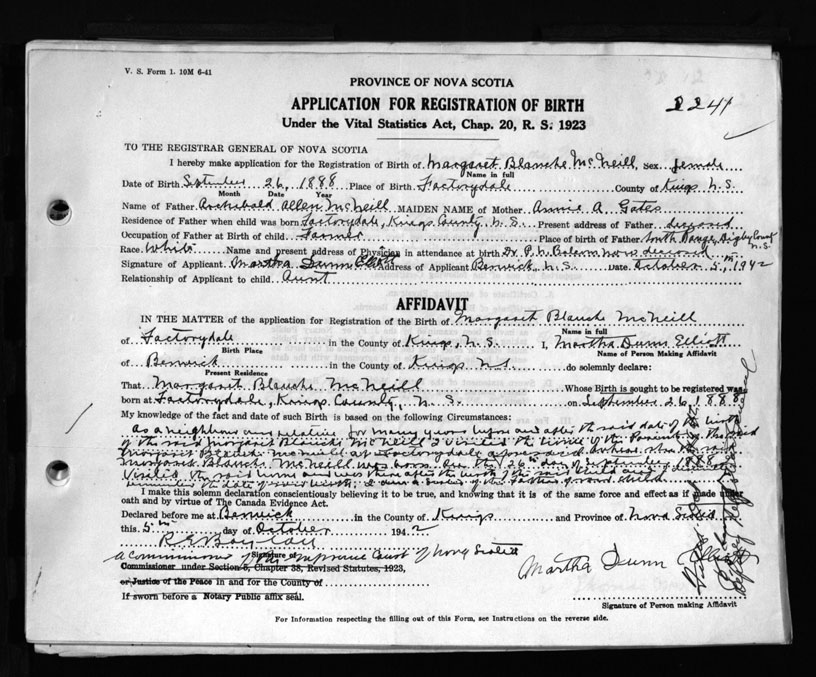 V. S. Form 1. 10M 6-41
PROVINCE OF NOVA SCOTIA
APPLICATION FOR REGISTRATION OF BIRTH
2241
Under the Vital Statistics Act, Chap. 20, R. S. 1923
TO THE REGISTRAR GENERAL OF NOVA SCOTIA
I hereby make application for the Registration of Birth of Margaret Blanche McNeill, Sex female
Name in full
Date of Birth September 26, 1888 Place of Birth Factorydale County of Kings N.S.
Month Date Year
Name of Father Archibald Allen McNeill MAIDEN NAME of Mother Annie A. Gates
Residence of Father when child was born Factorydale, Kings County, N.S. Present address of Father deceased
Occupation of Father at Birth of child Farmer Place of birth of Father South Range, Digby County N.S.
Race White Name and present address of Physician in attendance at birth Dr. P. N. now deceased
Signature of Applicant Martha Dunn Elliott Address of Applicant Berwick, N.S. Date October 5th, 1942
Relationship of Applicant to child Aunt
AFFIDAVIT
IN THE MATTER of the application for Registration of the Birth of Margaret Blanche McNeill
Name in full
of Factorydale in the County of Kings, N.S. I, Martha Dunn Elliott
Birth Place Name of Person Making Affidavit
of Berwick in the County of Kings N.S. do solemnly declare:
Present Residence
That Margaret Blanche McNeill Whose Birth is sought to be registered was
born at Factorydale, Kings County, N.S. on September 26, 1888
My knowledge of the fact and date of such Birth is based on the following Circumstances:
As a neighbour and relative for many years before and after the said date of the birth
of the said Margaret Blanche McNeill I visited the home of the Parents of the said
Margaret Blanche McNeill at Factorydale aforesaid where the said
Margaret Blanche McNeill was born on the 26th day of September 1888. I
visited the said home after the birth of the said child and
the date of said birth. I am a sister of the father of said child.
I make this solemn declaration conscientiously believing it to be true, and knowing that it is of the same force and effect as if made under
oath and by virtue of The Canada Evidence Act.
Declared before me at Berwick in the County of Kings and Province of Nova Scotia
this 5th day of October 1942
Signature of
A Commissioner of the Supreme Court of Nova Scotia
Commissioner under Section 6, Chapter 38, Revised Statutes, 1923,
Martha Dunn Elliott
or Justice of the Peace in and for the County of
If sworn before a Notary Public affix seal.
Signature of Person making Affidavit
For Information respecting the filling out of this Form, see Instructions on the reverse side.